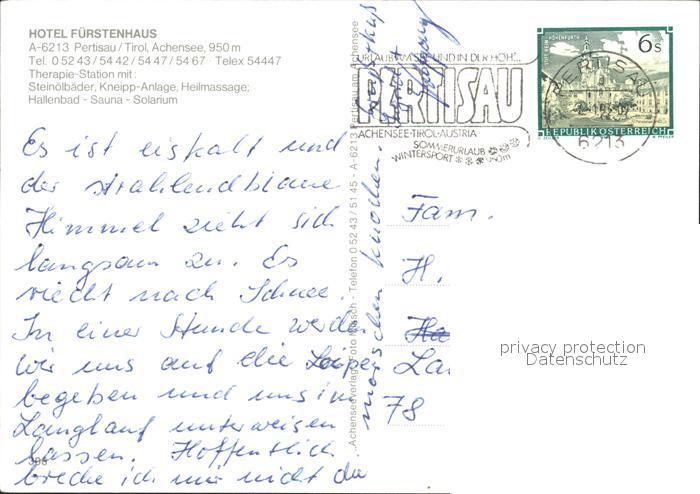 HOTEL FÜRSTENHAUS
A-6213 Pertisau/Tirol, Achensee, 950 m
Tel. 0 52 43 / 54 42 / 54 47 / 54 67 Telex 54447
Therapie-Station mit:
Steinölbäder, Kneipp-Anlage, Heilmassage;
Hallenbad - Sauna - Solarium
Es ist eiskalt und
der strahlendblaue
Himmel zieht sich
langsam zu. Es
riecht nach Schnee.
In einer Stunde werden
wir uns auf die Loipen
begeben und uns im
Langlauf unterweisen
lassen. Hoffentlich
breche ich mir nicht die
morschen Knochen.
398
Achenseeverlag Foto - Telefon 0 52 43 / 51 45 - A-6213 Pertisau am Achensee
URLAUB AM SEE UND IN DER HÖH'...
PERTISAU
ACHENSEE-TIROL-AUSTRIA
SOMMERURLAUB
WINTERSPORT 950m
PERTISAU
6213
6 s
REPUBLIK ÖSTERREICH
Fam.
H.
Ha
La
78
privacy protection
Datenschutz